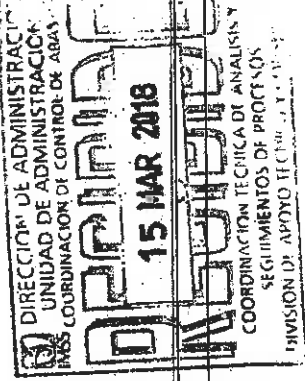 DIRECCIÓN DE ADMINISTRACIÓN
UNIDAD DE ADMINISTRACIÓN
IMSS COORDINACIÓN DE CONTROL DE ABAS
15 MAR 2018
COORDINACIÓN TECNICA DE ANALISIS Y
SEGUIMIENTOS DE PROCESOS
DIVISIÓN DE APOYO